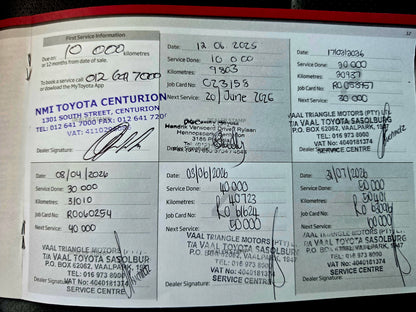 12
First Service Information
Due on: 10 000 kilometres
or 12 months from date of sale.
To book a service call 012 641 7000
or dowload the MyToyota App
NMI TOYOTA CENTURION
1301 SOUTH STREET, CENTURION
TEL: 012 641 7000 FAX: 012 641 720
VAT:
Dealer Signature:
Date: 12 06 2025
Service Done: 10 000
Kilometres: 9803
Job Card No: 023153
Next Service: 20/June 2026
Hendrik Verwoerd Drive
Dealer Signature:
Date: 17/03/2026
Service Done: 20 000
Kilometres: 30937
Job Card No:
Next Service: 30 000
VAAL TRIANGLE MOTORS (PTY) L
T/A VAAL TOYOTA SASOLBURG
P.O. BOX 62062, VAALPARK, 1947
TEL: 016 973 8000
VAT No: 4040181374
SERVICE CENTRE
Date: 08/04/2026
Service Done: 30 000
Kilometres: 31010
Job Card No: R0060254
Next Service: 40 000
VAAL TRIANGLE MOTORS (PTY) L
T/A VAAL TOYOTA SASOLBUR
P.O. BOX 62062, VAALPARK, 1947
TEL: 016 973 8000
VAT No: 4040181374
SERVICE CENTRE
Dealer Signature:
Date: 03/06/2026
Service Done: 40 000
Kilometres: 40723
Job Card No: R0 61624
Next Service: 50 000
VAAL TRIANGLE MOTORS (PTY) L
T/A VAAL TOYOTA SASOLBURG
P.O. BOX 62062, VAALPARK, 1947
TEL: 016 973 8000
VAT No: 4040181374
SERVICE CENTRE
Dealer Signature:
Date: 31/07/2026
Service Done: 50 000
Kilometres:
Job Card No:
Next Service:
VAAL TRIANGLE MOTORS (PTY) L
T/A VAAL TOYOTA SASOLBURG
P.O. BOX 62062, VAALPARK, 1947
TEL: 016 973 8000
VAT No: 4040181374
SERVICE CENTRE
Dealer Signature: